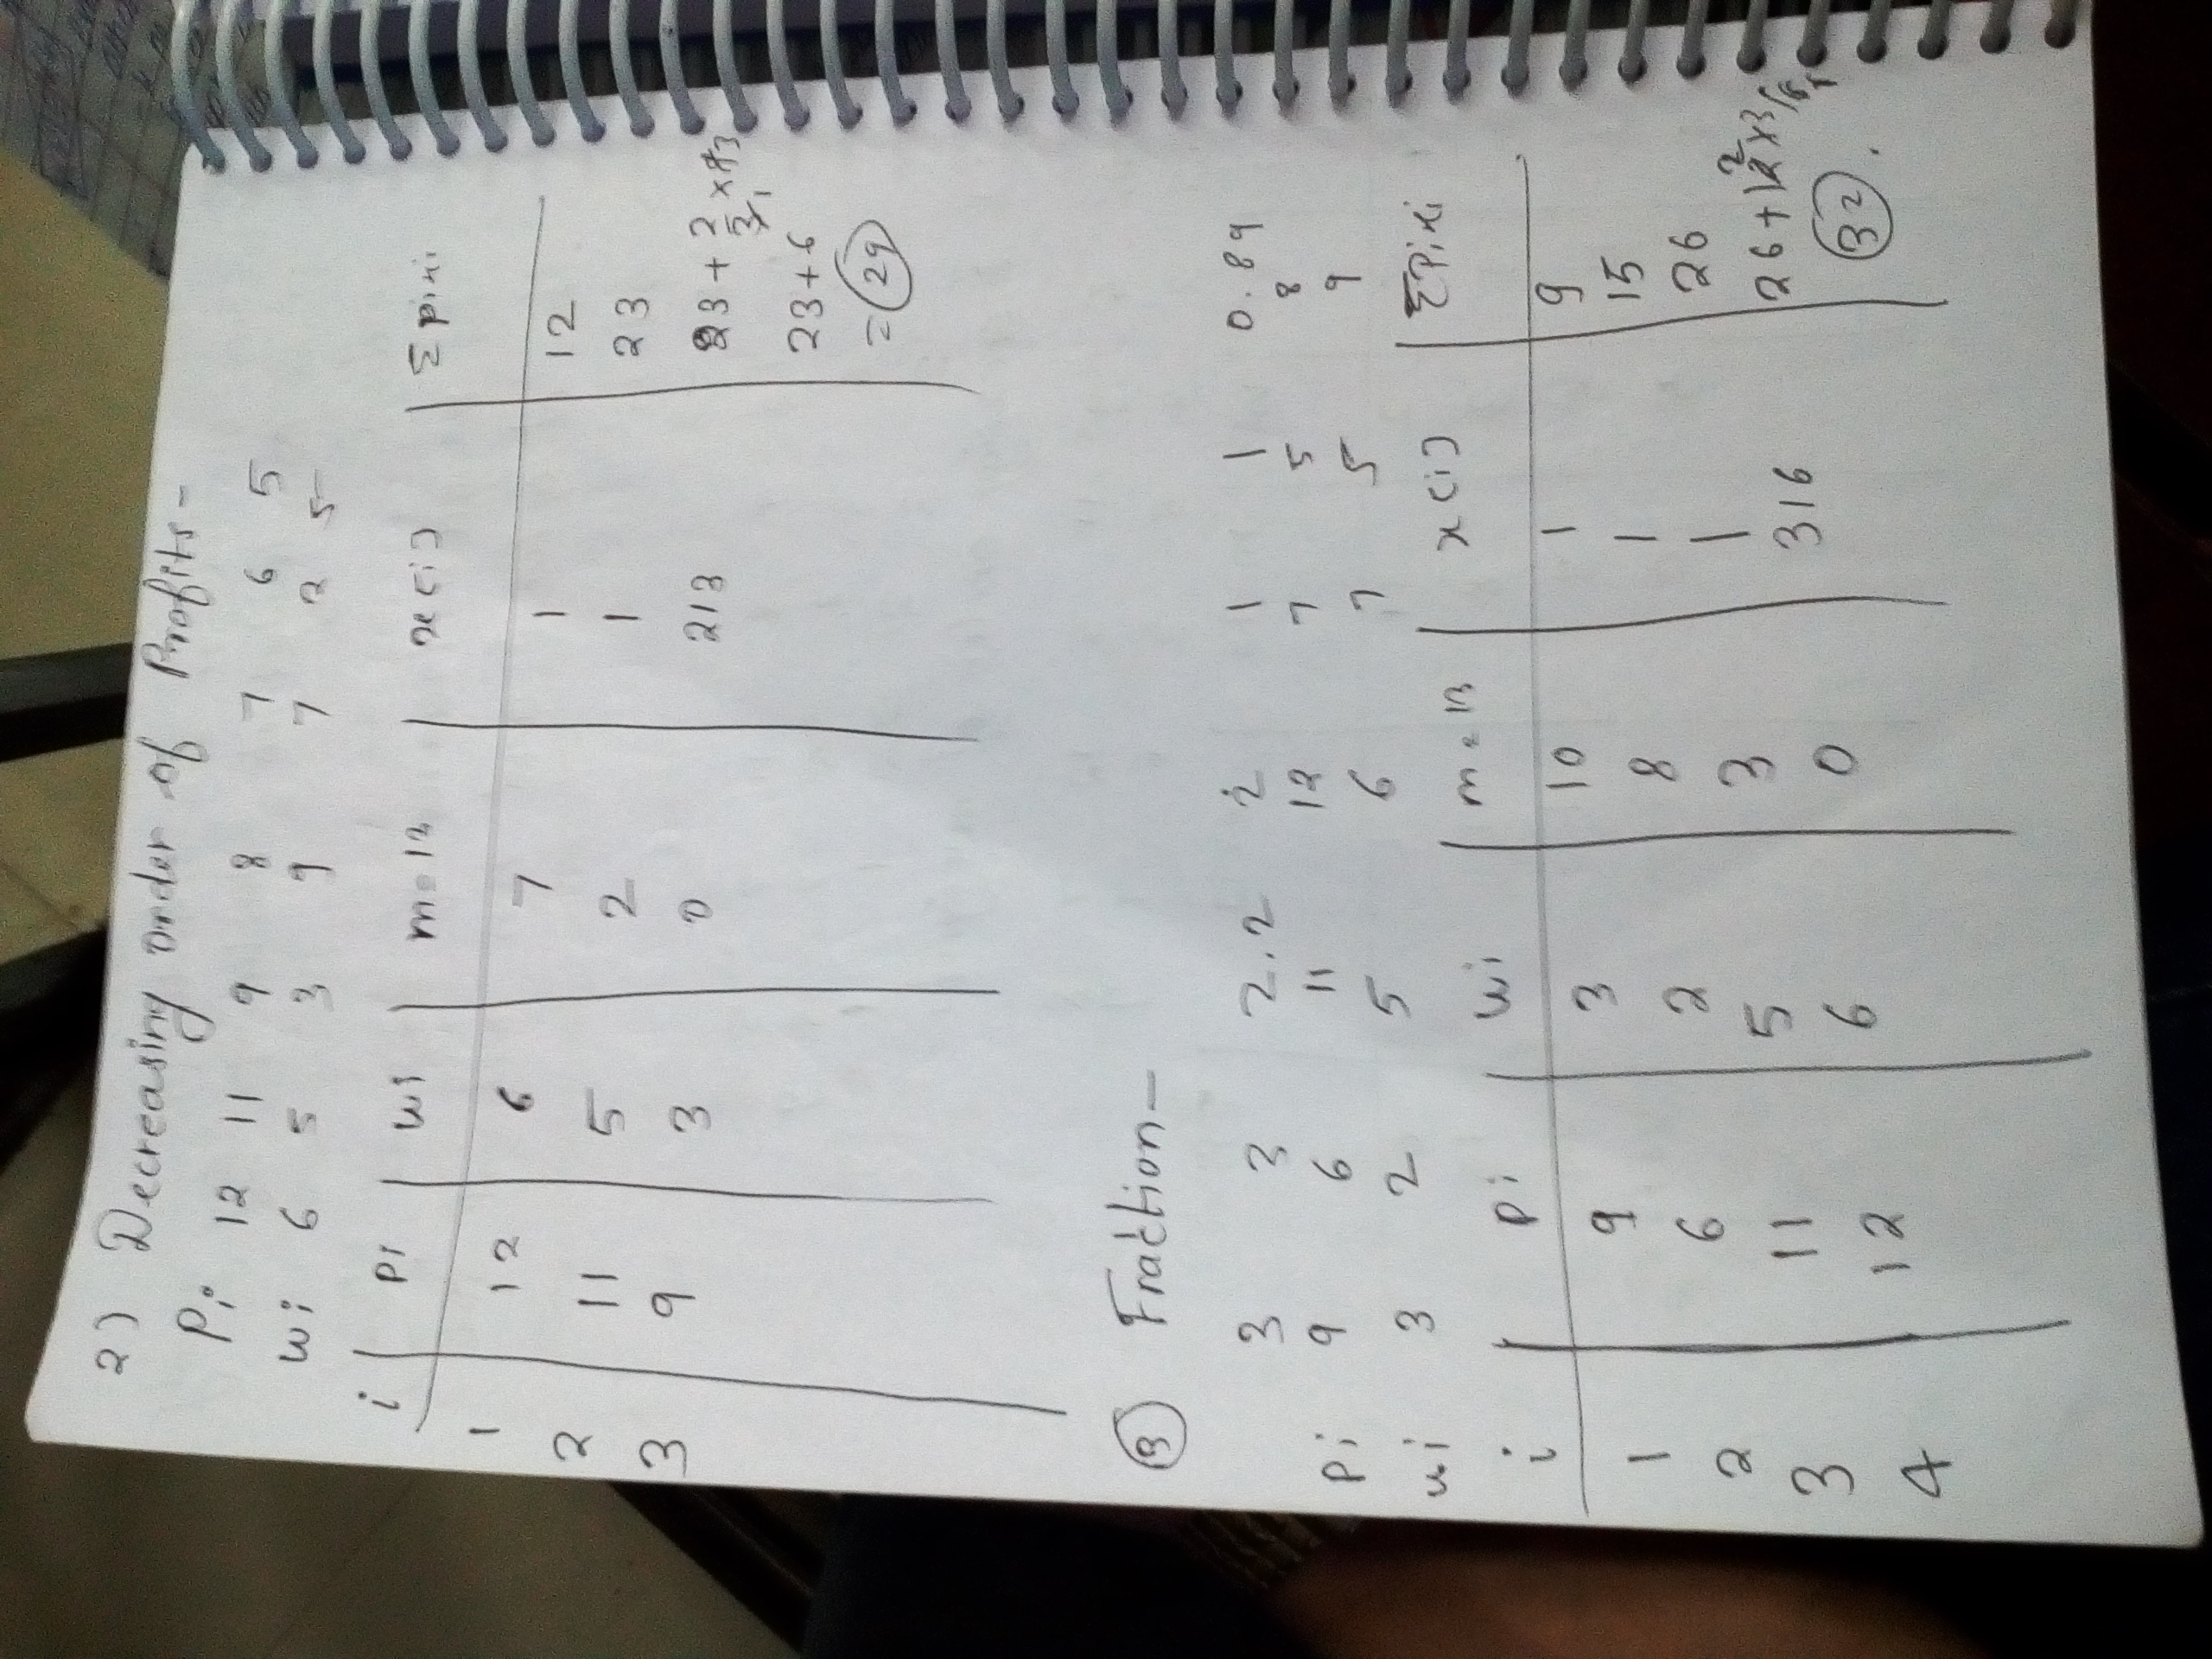 2) Decreasing order of Profits-
Pi 12 11 9 8 7 6 5
wi 6 5 3 9 7 2 5
i Pi wi m=13 x[i] Σpixi
1 12 6 7 1 12
2 11 5 2 1 23
3 9 3 0 2/3 23 + 2/3 x 9 3
1
23+6
= 29
3 Fraction-
3 3 2.2 2 1 1 0.89
Pi 9 6 11 12 7 5 8
wi 3 2 5 6 7 5 9
i Pi wi m=13 x[i] ΣPixi
1 9 3 10 1 9
2 6 2 8 1 15
3 11 5 3 1 26
4 12 6 0 3/6 26+12 2 x3/6 1
32.